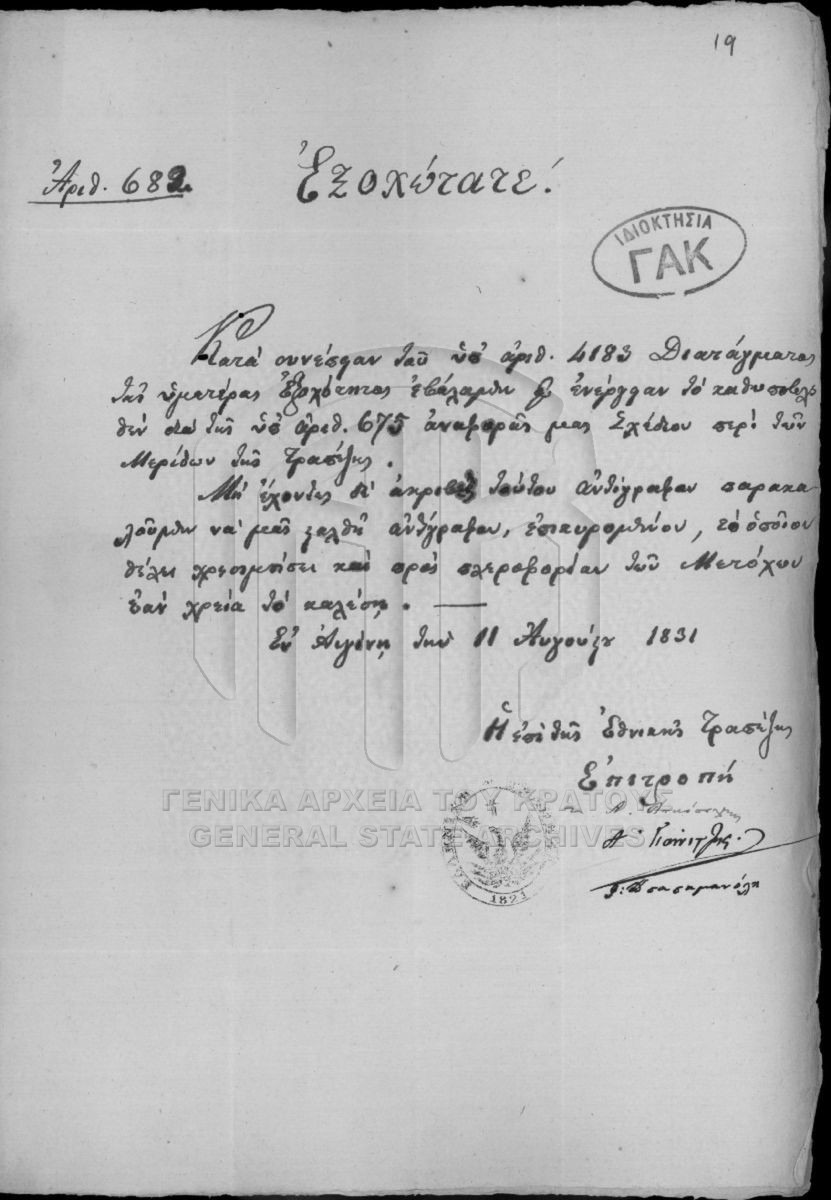 19
Ἀριθ. 682.
Ἐξοχώτατε!
ΙΔΙΟΚΤΗΣΙΑ
ΓΑΚ
Κατὰ συνέπειαν τοῦ ὑπ' ἀριθ. 4183 Διατάγματος
τῆς ὑμετέρας Ἐξοχότητος ἐβάλαμεν εἰς ἐνέργειαν τὸ καθυποβλη
θὲν διὰ τῆς ὑπ' ἀριθ. 675 ἀναφορᾶς μας Σχέδιον περὶ τῶν
Μερίδων τῆς Τραπέζης.
Μὴ ἔχοντες δὲ ἀκριβὲς τούτου ἀντίγραφον παρακα-
λοῦμεν νὰ μᾶς σαλθῇ ἀντίγραφον, ἐπικυρωμένον, τὸ ὁποῖον
θέλει χρησιμεύσει καὶ πρὸς πληροφορίαν τῶν Μετόχων
ἐὰν χρεία τὸ καλέσῃ. —
Ἐν Αἰγίνῃ τὴν 11 Αὐγούστου 1831
Ἡ ἐπὶ τῆς Ἐθνικῆς Τραπέζης
Ἐπιτροπή
ΓΕΝΙΚΑ ΑΡΧΕΙΑ ΤΟΥ ΚΡΑΤΟΥΣ
GENERAL STATE ARCHIVES
1821